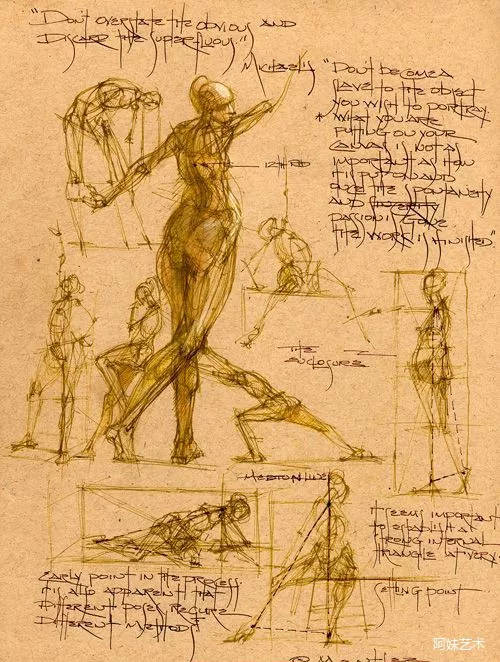 "Don't overstate the obvious and
Discard the superfluous."
Michaelis
"Don't become a
slave to the object
you wish to portray.
* What you are
putting on your
canvas is not as
important as how
it is put on and
once the spontaneity
and
passion is gone
the work is finished."
12th rib
The
Enclosure
It seems important
to establish a
strong internal
triangle at very
early point in the process.
It is also apparent that
different poses require
different methods
Setting point
阿妹艺术